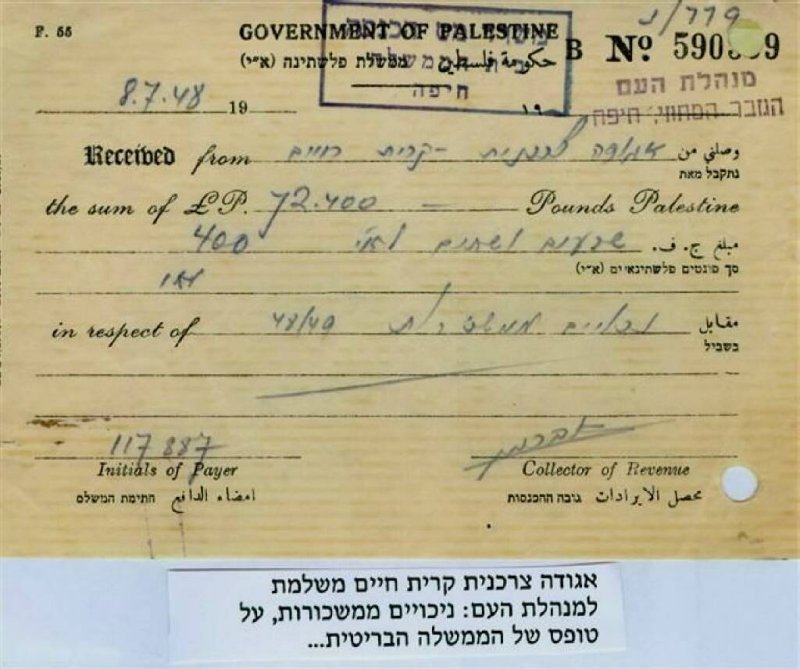 F. 55
GOVERNMENT OF PALESTINE
B No 590
נ/779
حكومة فلسطين ממשלת פלשתינה (א״י)
חיפה
מנהלת העם
הגזבר המחוזי, חיפה
8.7.48 19 ١٩
Received from אגודה צרכנית - קרית חיים وصلني من
נתקבל מאת
the sum of £P. 72.400 — Pounds Palestine
400 שבעים ושתים לא״י مبلغ ج. ف.
סך פונטים פלשתינאיים (א״י)
in respect of 48/49 נכויים ממשכורת مقابل
בשביל
117887
Initials of Payer Collector of Revenue
امضاء الدافع חתימת המשלם محصل الايرادات גובה ההכנסות
אגודה צרכנית קרית חיים משלמת
למנהלת העם: ניכויים ממשכורות, על
טופס של הממשלה הבריטית...